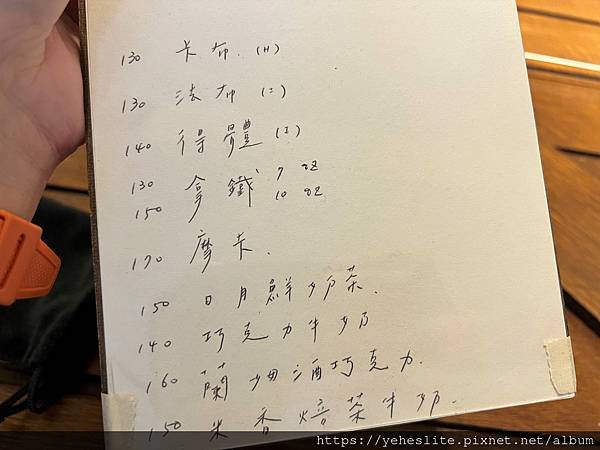 130 卡布 (H)
130 法布 (I)
140 得體 (I)
130 拿鐵 7 oz
150 10 oz
170 摩卡.
150 日月鮮奶茶.
140 巧克力牛奶
160 蘭姆酒巧克力.
150 米香焙茶牛奶.
https://yeheslite.pixnet.net/album